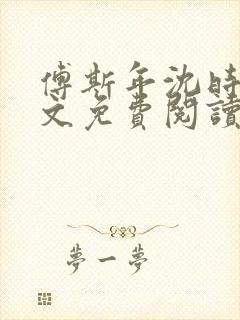 傅斯年沈時
文免費閱讀
夢一夢